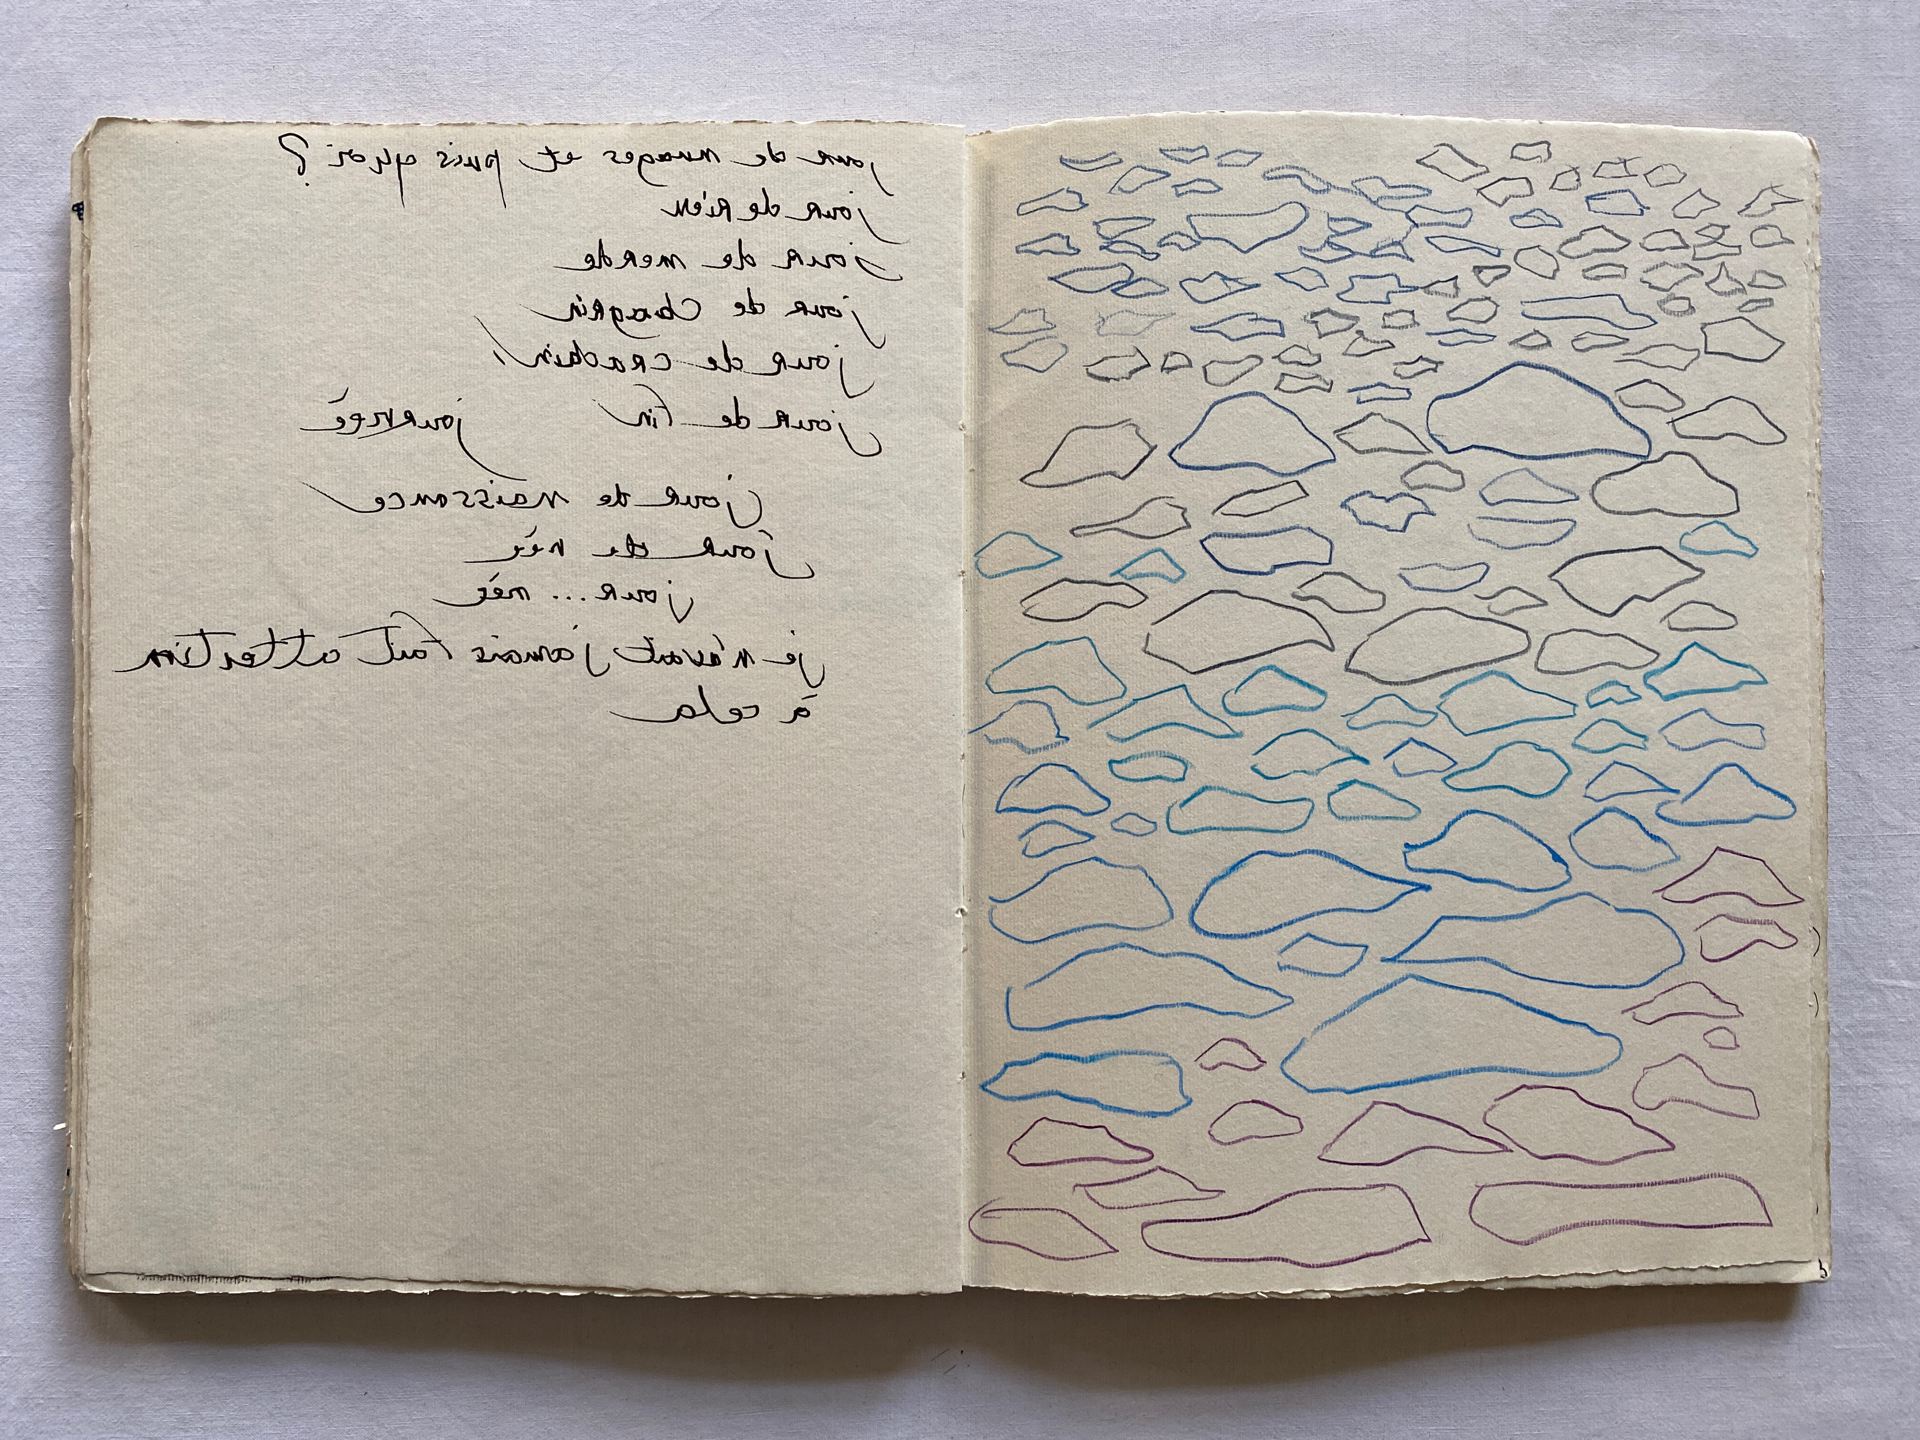 jour de nuages et puis quoi ?
jour de rien
jour de merde
jour de chagrin
jour de crachin
jour de fin journée
jour de naissance
jour de née
jour ... née
je n'avait jamais fait attention
à cela